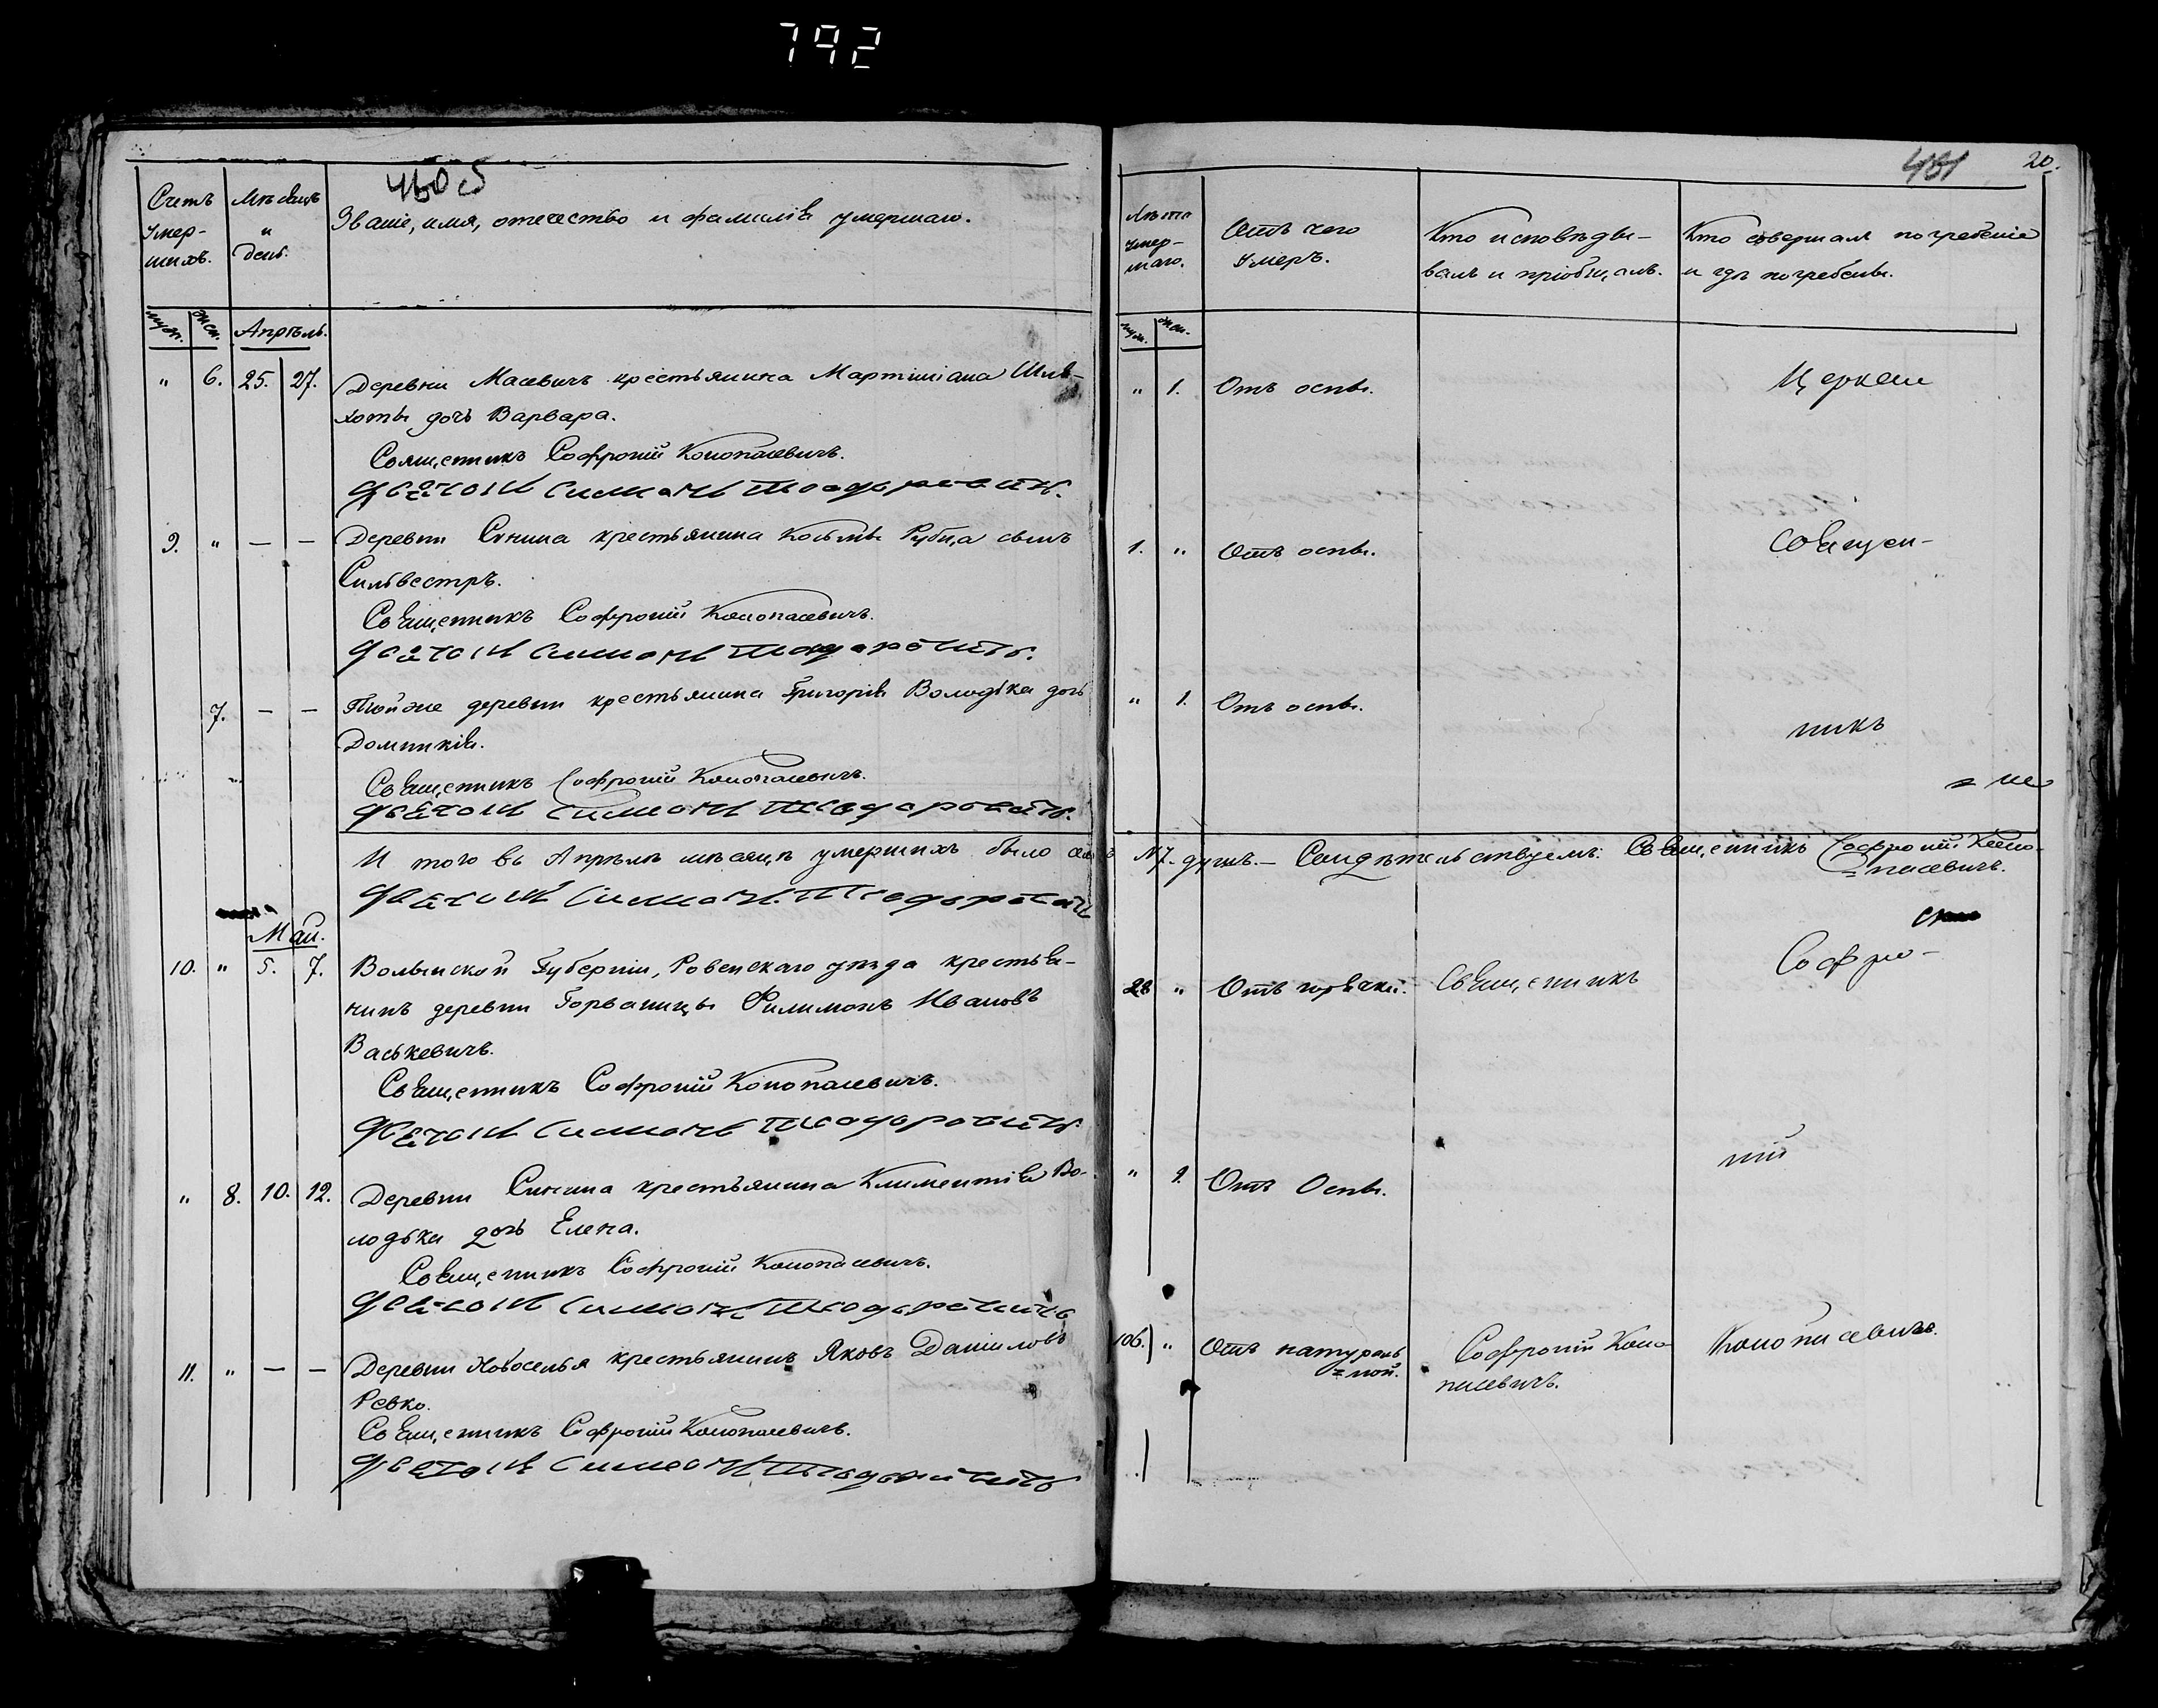 792
460 об
Счетъ умершихъ.
Мѣсяцъ и день.
Званіе, имя, отечество и фамилія умершаго.
муж. жен. Апрѣль.
" 6. 25. 27. Деревни Масевичъ крестьянина Мартиніана Шле-
хоты дочь Варвара.
Священникъ Софроній Конопасевичъ.
Дьячокъ Симонъ Теодоровичъ.
9. " — — Деревни Сѣхина крестьянина Косьмы Рубца сынъ
Сильвестръ.
Священникъ Софроній Конопасевичъ.
Дьячокъ Симонъ Теодоровичъ.
7. — — Тойже деревни крестьянина Григорія Володька дочь
Домникія.
Священникъ Софроній Конопасевичъ.
Дьячокъ Симонъ Теодоровичъ.
И того въ Апрѣлѣ мѣсяцѣ умершихъ было
Дьячокъ Симонъ Теодорович
Май.
10. " 5. 7. Волынской Губерніи, Ровенскаго уѣзда крестья-
нинъ деревни Горваницы Филимонъ Ивановъ
Васькевичъ.
Священникъ Софроній Конопасевичъ.
Дьячокъ Симонъ Теодоровичъ.
" 8. 10. 12. Деревни Сѣхина крестьянина Климентія Во-
лодька дочь Елена.
Священникъ Софроній Конопасевичъ.
Дьячокъ Симонъ Теодоровичъ
11. " — — Деревни Новоселья крестьянинъ Яковъ Даніиловъ
Ревко.
Священникъ Софроній Конопасевичъ.
Дьячокъ Симонъ Теодоровичъ
481 20.
Лѣта умершаго.
Отъ чего умеръ.
Кто исповѣды-
валъ и пріобщалъ.
Кто совершалъ погребеніе
и гдѣ погребены.
муж. жен.
" 1. Отъ оспы. Церкви
1. " Отъ оспы. Священ-
" 1. Отъ оспы. никъ
7. душъ.— Свидѣтельствуемъ: Священникъ Софроній Коно-
=пасевичъ.
28 " Отъ горячки. Священникъ Софро-
" 1. Отъ Оспы. ній
106. " Отъ натураль
=ной. Софроній Коно
пасевичъ. Конопасевичъ.